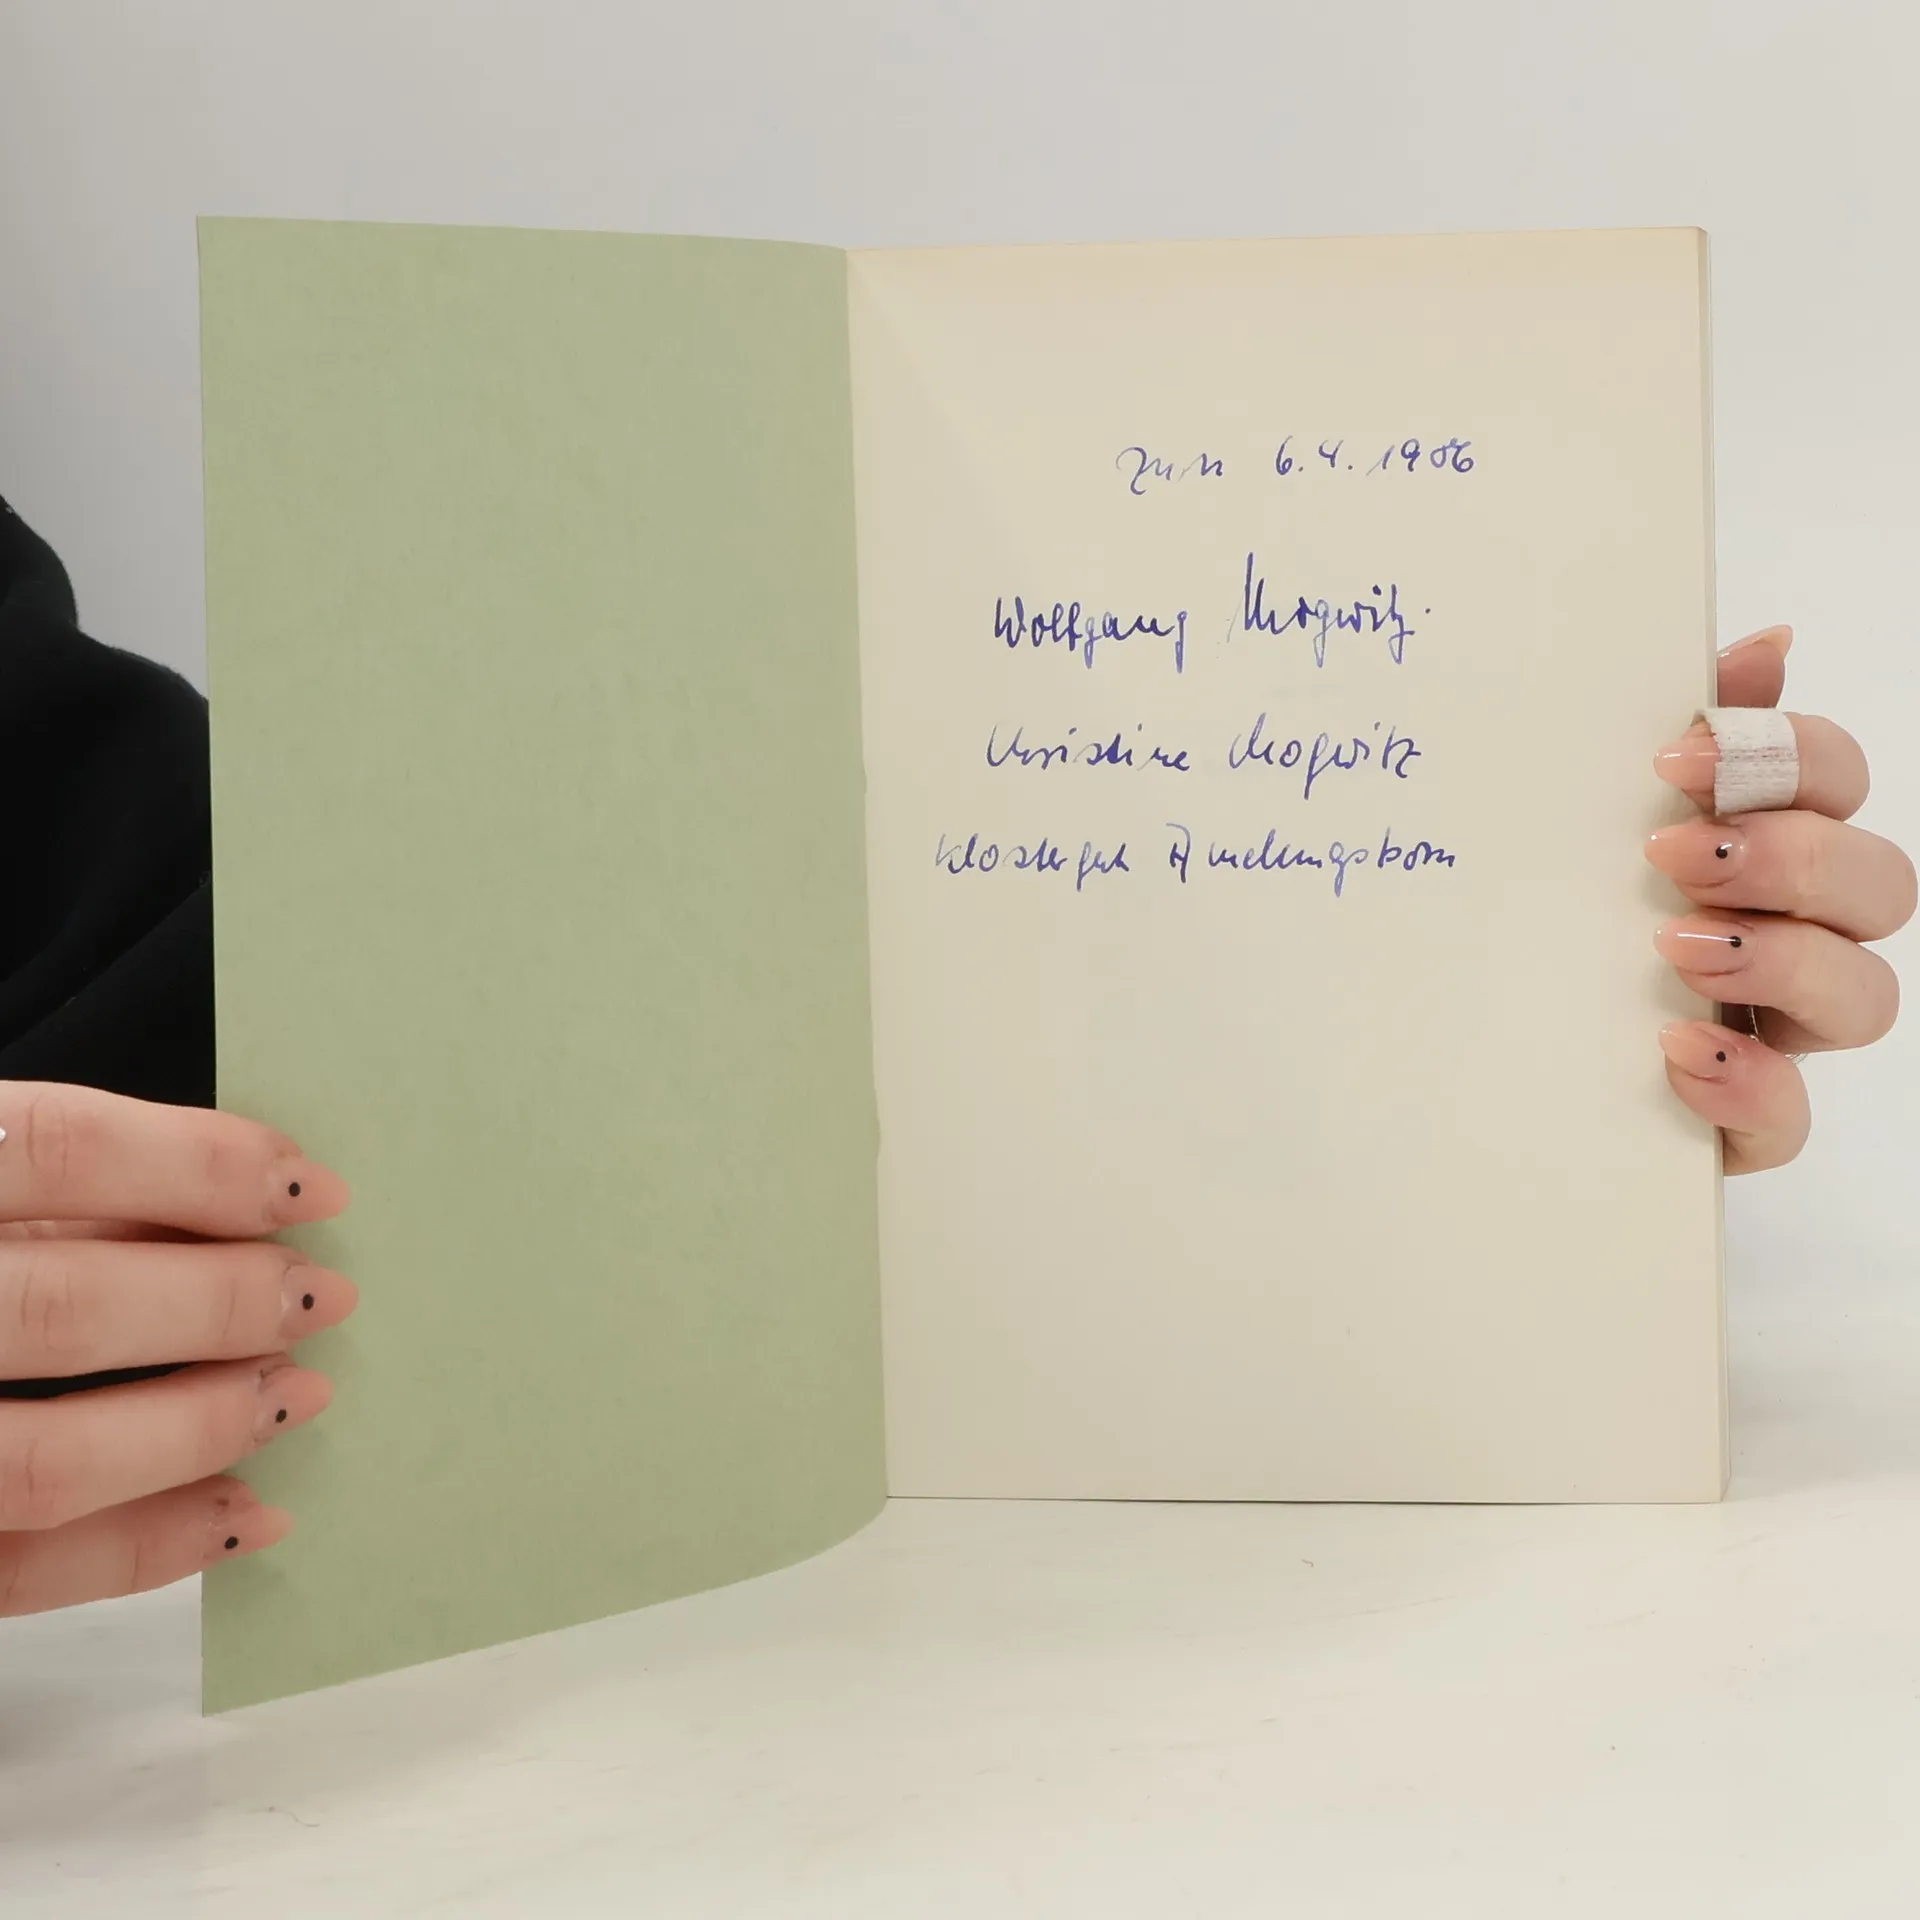 Zum 6.4.1986
Wolfgang Mogwitz
Christine Mogwitz
Klostergut Amelungsborn